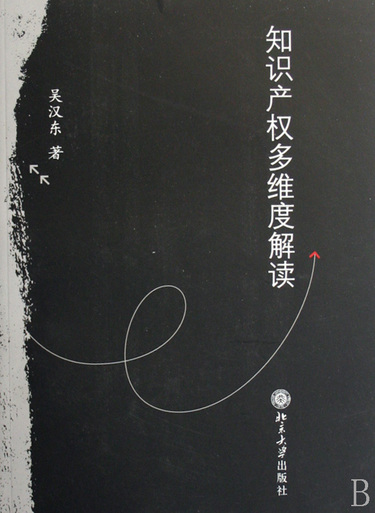 知识产权多维度解读
吴汉东 著
北京大学出版社
B